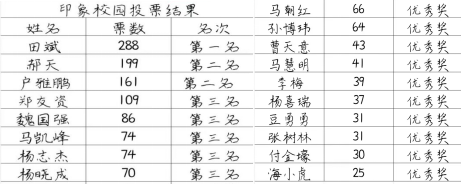 印象校园投票结果
姓名 票数 名次
田斌 288 第一名
郝天 199 第二名
卢雅鹏 161 第二名
郑友资 109 第三名
魏国强 86 第三名
马凯峰 74 第三名
杨志杰 74 第三名
杨晓成 70 第三名
马朝红 66 优秀奖
孙博玮 64 优秀奖
曹天意 43 优秀奖
马慧明 41 优秀奖
李梅 39 优秀奖
杨喜瑞 37 优秀奖
豆勇勇 31 优秀奖
张树林 31 优秀奖
付金壕 30 优秀奖
海小虎 25 优秀奖